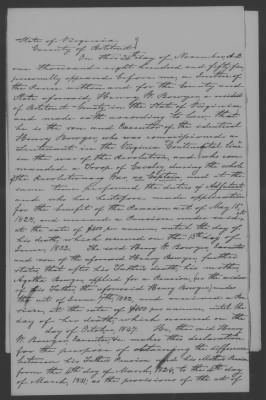 State of Virginia
County of Botetourt
On this 25th day of November A.D.
one thousand eight hundred and fifty four
personally appeared before me, a Justice of
the Peace within and for the County and
State aforesaid, Henry W. Bowyer, a resident
of Botetourt County in the State of Virginia
and made oath according to law, that
he is the son and Executor of the identical
Henry Bowyer, who was commissioned a
Lieutenant in the Virginia Continental line
in the war of the Revolution, and who com-
manded a Troop of Cavalry during the
of the Revolution as Captain, and at the
same time performed the duties of Adjutant
and who has heretofore made application
for the benefit of the Pension act of May 15th
1828, and received a Pension under said act
at the rate of per annum, until the day of
his death, which occurred on the 13th of
June, 1832. The said Henry W. Bowyer, Executor
and son of the aforesaid Henry Bowyer further
states, that after his Father's death, his mother
Agatha Bowyer applied for a Pension, as the widow
of his Father the aforesaid Henry Bowyer, under
the act of June 7th, 1832, and received a Pen-
sion, at the rate of $600 per annum, till the
day of her death, which occurred on the
day of October, 1847. He, the said Henry
W. Bowyer, Executor, &c. makes this declaration
for the purpose of obtaining the difference
between his Father's Pension and his Mother's Pension
from the 4th day of March, 1826, to the 4th day
of March, 1831, as the provisions of the act of